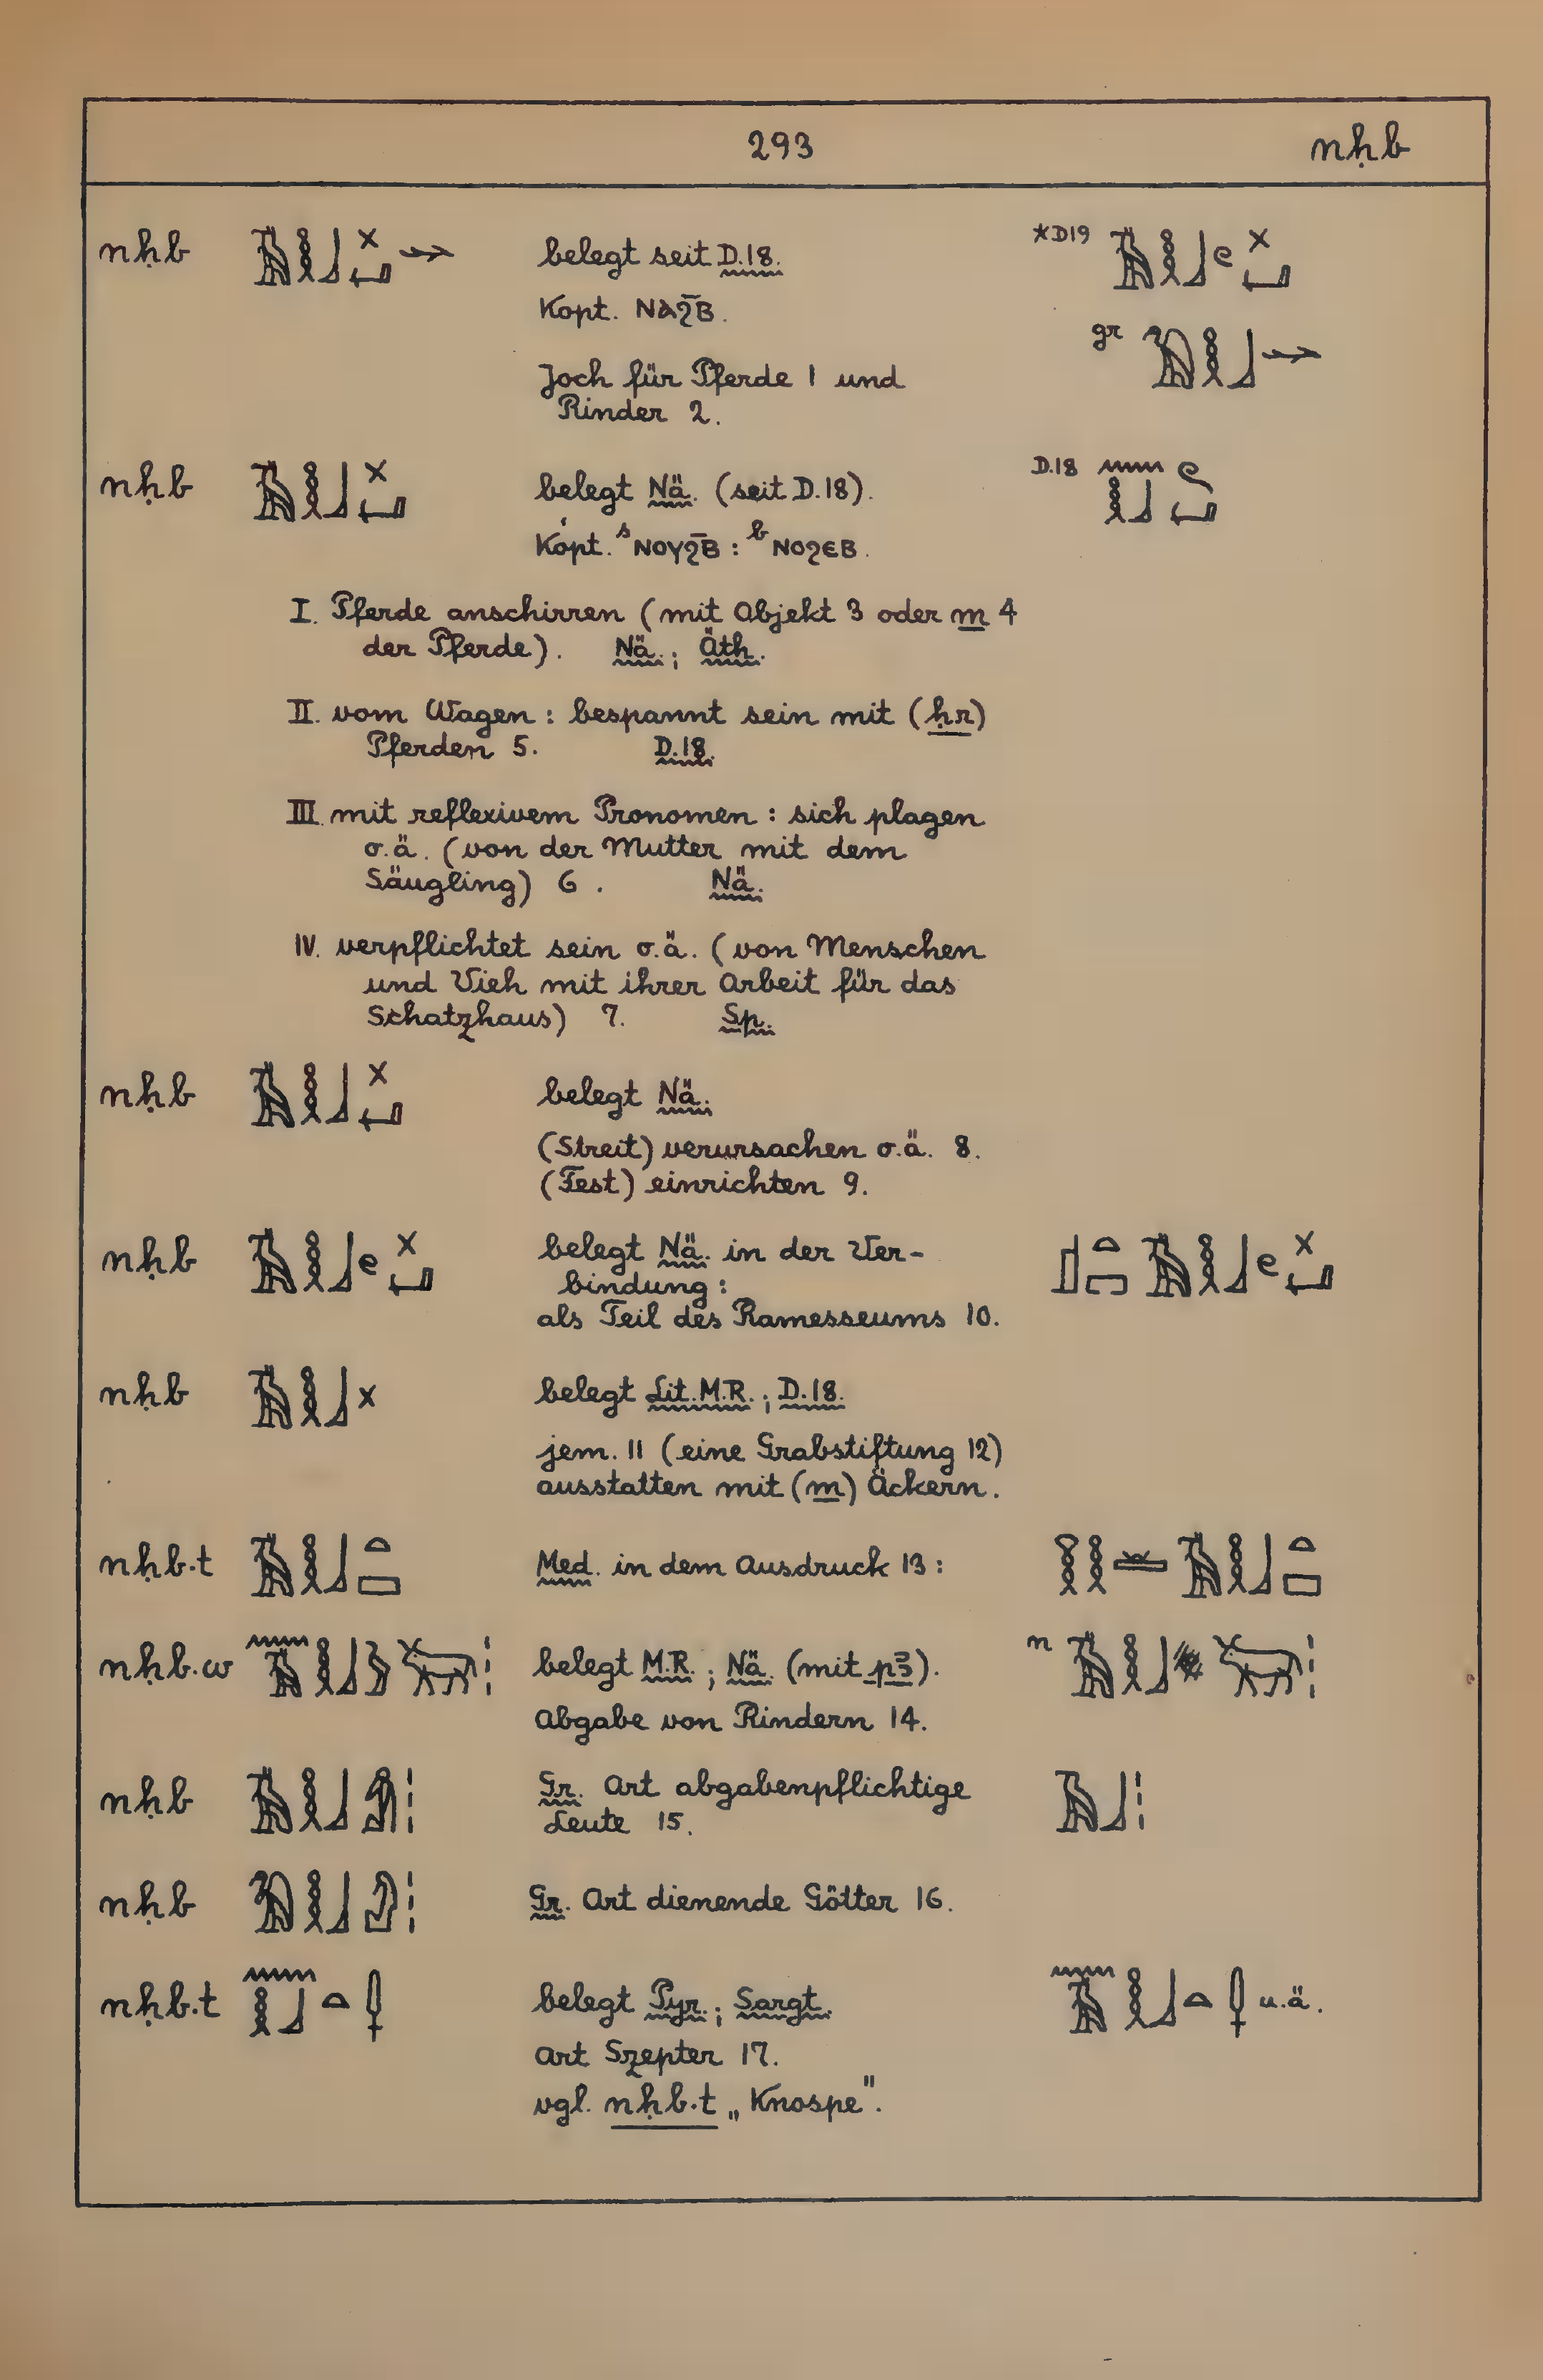 293 nḥb
nḥb belegt seit D.18. *D19
Kopt. ⲚⲀϨⲂ̅.
gr
Joch für Pferde 1 und
Rinder 2.
nḥb belegt Nä. (seit D.18). D.18
Kopt. ˢⲚⲞⲨϨⲂ̅ : ᵇⲚⲞϨⲈⲂ.
I. Pferde anschirren (mit Objekt 3 oder m 4
der Pferde). Nä.; Äth.
II. vom Wagen : bespannt sein mit (ḥr)
Pferden 5. D.18.
III. mit reflexivem Pronomen : sich plagen
o.ä. (von der Mutter mit dem
Säugling) 6. Nä.
IV. verpflichtet sein o.ä. (von Menschen
und Vieh mit ihrer Arbeit für das
Schatzhaus) 7. Sp.
nḥb belegt Nä.
(Streit) verursachen o.ä. 8.
(Fest) einrichten 9.
nḥb belegt Nä. in der Ver-
bindung :
als Teil des Ramesseums 10.
nḥb belegt Lit. M.R.; D.18.
jem. 11 (eine Grabstiftung 12)
ausstatten mit (m) Äckern.
nḥb.t Med. in dem Ausdruck 13 :
nḥb.w belegt M.R.; Nä. (mit pꜣ). n
Abgabe von Rindern 14.
nḥb Gr. Art abgabenpflichtige
Leute 15.
nḥb Gr. Art dienende Götter 16.
nḥb.t belegt Pyr.; Sargt. u.ä.
Art Szepter 17.
vgl. nḥb.t „Knospe".